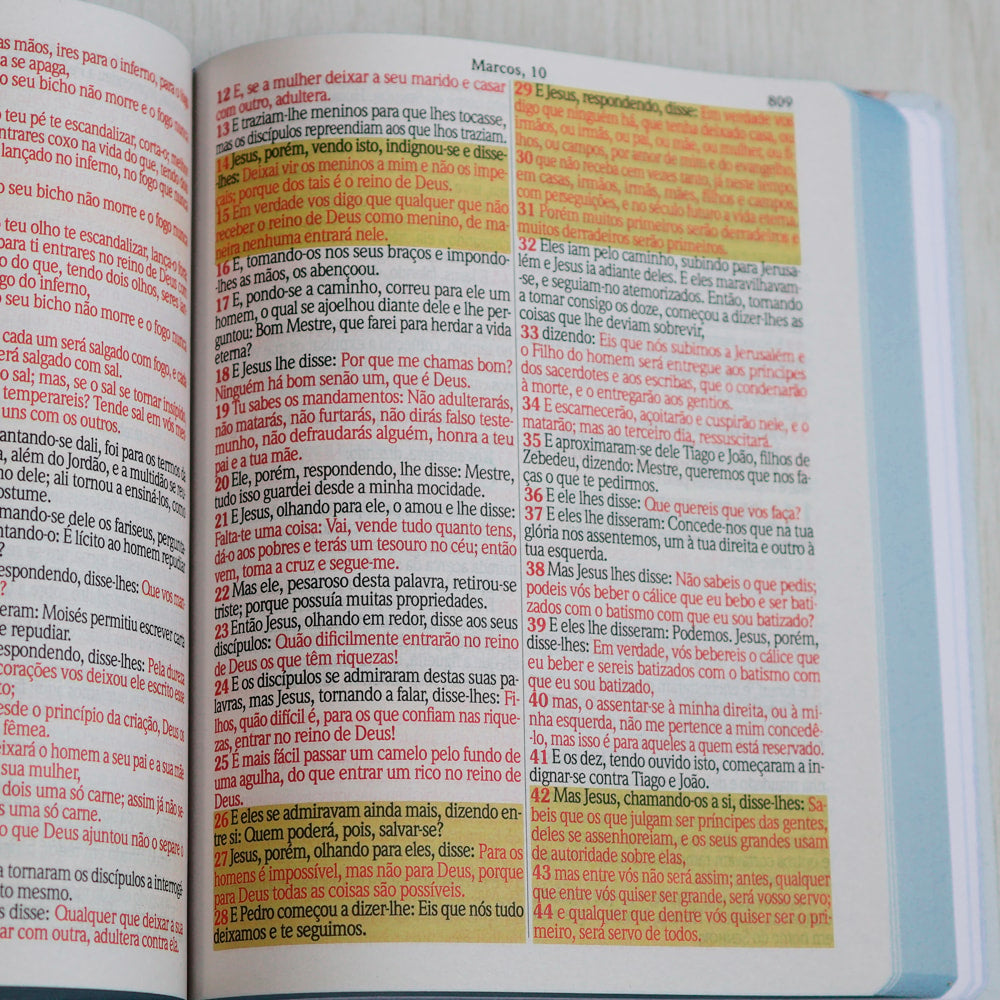 as mãos, ires para o inferno, para o fogo
a se apaga,
o seu bicho não morre e o fogo nunca
o teu pé te escandalizar, corta-o; melhor
entrares coxo na vida do que, tendo dois
lançado no inferno, no fogo que nunca
o seu bicho não morre e o fogo nunca
o teu olho te escandalizar, lança-o fora;
para ti entrares no reino de Deus com
o do que, tendo dois olhos, seres lan-
go do inferno,
o seu bicho não morre e o fogo nunca
cada um será salgado com fogo, e cada
erá salgado com sal.
o sal; mas, se o sal se tornar insípido,
temperareis? Tende sal em vós mes-
uns com os outros.
antando-se dali, foi para os termos da
a, além do Jordão, e a multidão se reu-
no dele; ali tornou a ensiná-los, como
ostume.
mando-se dele os fariseus, pergunta-
ntando-o: É lícito ao homem repudiar
?
espondendo, disse-lhes: Que vos man-
?
eram: Moisés permitiu escrever carta
e repudiar.
espondendo, disse-lhes: Pela dureza
corações vos deixou ele escrito esse
to;
esde o princípio da criação, Deus os
fêmea.
eixará o homem a seu pai e a sua mãe
sua mulher,
dois uma só carne; assim já não se-
s uma só carne.
o que Deus ajuntou não o separe o
a tornaram os discípulos a interrogá-
to mesmo.
s disse: Qualquer que deixar a sua
ar com outra, adultera contra ela.
Marcos, 10
809
12 E, se a mulher deixar a seu marido e casar
com outro, adultera.
13 E traziam-lhe meninos para que lhes tocasse,
mas os discípulos repreendiam aos que lhos traziam.
14 Jesus, porém, vendo isto, indignou-se e disse-
-lhes: Deixai vir os meninos a mim e não os impe-
çais; porque dos tais é o reino de Deus.
15 Em verdade vos digo que qualquer que não
receber o reino de Deus como menino, de ma-
neira nenhuma entrará nele.
16 E, tomando-os nos seus braços e impondo-
-lhes as mãos, os abençoou.
17 E, pondo-se a caminho, correu para ele um
homem, o qual se ajoelhou diante dele e lhe per-
guntou: Bom Mestre, que farei para herdar a vida
eterna?
18 E Jesus lhe disse: Por que me chamas bom?
Ninguém há bom senão um, que é Deus.
19 Tu sabes os mandamentos: Não adulterarás,
não matarás, não furtarás, não dirás falso teste-
munho, não defraudarás alguém, honra a teu
pai e a tua mãe.
20 Ele, porém, respondendo, lhe disse: Mestre,
tudo isso guardei desde a minha mocidade.
21 E Jesus, olhando para ele, o amou e lhe disse:
Falta-te uma coisa: Vai, vende tudo quanto tens,
dá-o aos pobres e terás um tesouro no céu; então
vem, toma a cruz e segue-me.
22 Mas ele, pesaroso desta palavra, retirou-se
triste; porque possuía muitas propriedades.
23 Então Jesus, olhando em redor, disse aos seus
discípulos: Quão dificilmente entrarão no reino
de Deus os que têm riquezas!
24 E os discípulos se admiraram destas suas pa-
lavras, mas Jesus, tornando a falar, disse-lhes: Fi-
lhos, quão difícil é, para os que confiam nas rique-
zas, entrar no reino de Deus!
25 É mais fácil passar um camelo pelo fundo de
uma agulha, do que entrar um rico no reino de
Deus.
26 E eles se admiravam ainda mais, dizendo en-
tre si: Quem poderá, pois, salvar-se?
27 Jesus, porém, olhando para eles, disse: Para os
homens é impossível, mas não para Deus, porque
para Deus todas as coisas são possíveis.
28 E Pedro começou a dizer-lhe: Eis que nós tudo
deixamos e te seguimos.
29 E Jesus, respondendo, disse: Em verdade vos
digo que ninguém há, que tenha deixado casa, ou
irmãos, ou irmãs, ou pai, ou mãe, ou mulher, ou fi-
lhos, ou campos, por amor de mim e do evangelho,
30 que não receba cem vezes tanto, já neste tempo,
em casas, irmãos, irmãs, mães, filhos e campos,
com perseguições, e no século futuro a vida eterna.
31 Porém muitos primeiros serão derradeiros e
muitos derradeiros serão primeiros.
32 Eles iam pelo caminho, subindo para Jerusa-
lém e Jesus ia adiante deles. E eles maravilhavam-
-se, e seguiam-no atemorizados. Então, tornando
a tomar consigo os doze, começou a dizer-lhes as
coisas que lhe deviam sobrevir,
33 dizendo: Eis que nós subimos a Jerusalém e
o Filho do homem será entregue aos príncipes
dos sacerdotes e aos escribas, que o condenarão
à morte, e o entregarão aos gentios.
34 E escarnecerão, açoitarão e cuspirão nele, e o
matarão; mas ao terceiro dia, ressuscitará.
35 E aproximaram-se dele Tiago e João, filhos de
Zebedeu, dizendo: Mestre, queremos que nos fa-
ças o que te pedirmos.
36 E ele lhes disse: Que quereis que vos faça?
37 E eles lhe disseram: Concede-nos que na tua
glória nos assentemos, um à tua direita e outro à
tua esquerda.
38 Mas Jesus lhes disse: Não sabeis o que pedis;
podeis vós beber o cálice que eu bebo e ser bati-
zados com o batismo com que eu sou batizado?
39 E eles lhe disseram: Podemos. Jesus, porém,
disse-lhes: Em verdade, vós bebereis o cálice que
eu beber e sereis batizados com o batismo com
que eu sou batizado,
40 mas, o assentar-se à minha direita, ou à mi-
nha esquerda, não me pertence a mim concedê-
-lo, mas isso é para aqueles a quem está reservado.
41 E os dez, tendo ouvido isto, começaram a in-
dignar-se contra Tiago e João.
42 Mas Jesus, chamando-os a si, disse-lhes: Sa-
beis que os que julgam ser príncipes das gentes,
deles se assenhoreiam, e os seus grandes usam
de autoridade sobre elas,
43 mas entre vós não será assim; antes, qualquer
que entre vós quiser ser grande, será vosso servo;
44 e qualquer que dentre vós quiser ser o pri-
meiro, será servo de todos.